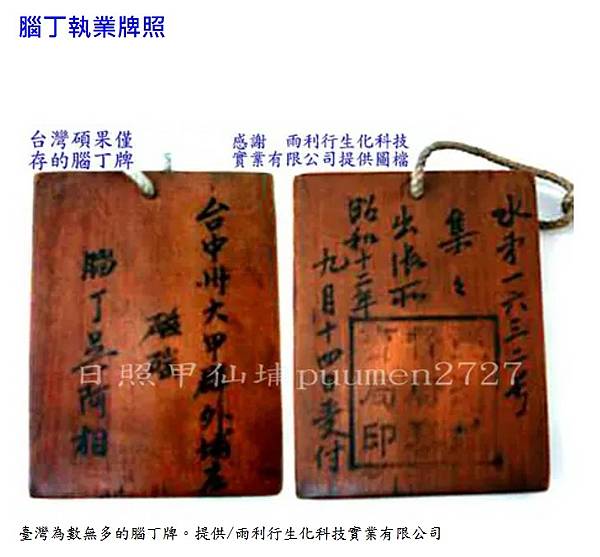 腦丁執業牌照
台灣碩果僅
存的腦丁牌
感謝　雨利行生化科技
實業有限公司提供圖檔
台中州大甲郡外埔庄
磁磘
腦丁吳阿相
水第一六三二号
集々
出張所
昭和十二年
九月十四日受付
局印
日照甲仙埔puumen2727
臺灣為數無多的腦丁牌。提供/雨利行生化科技實業有限公司